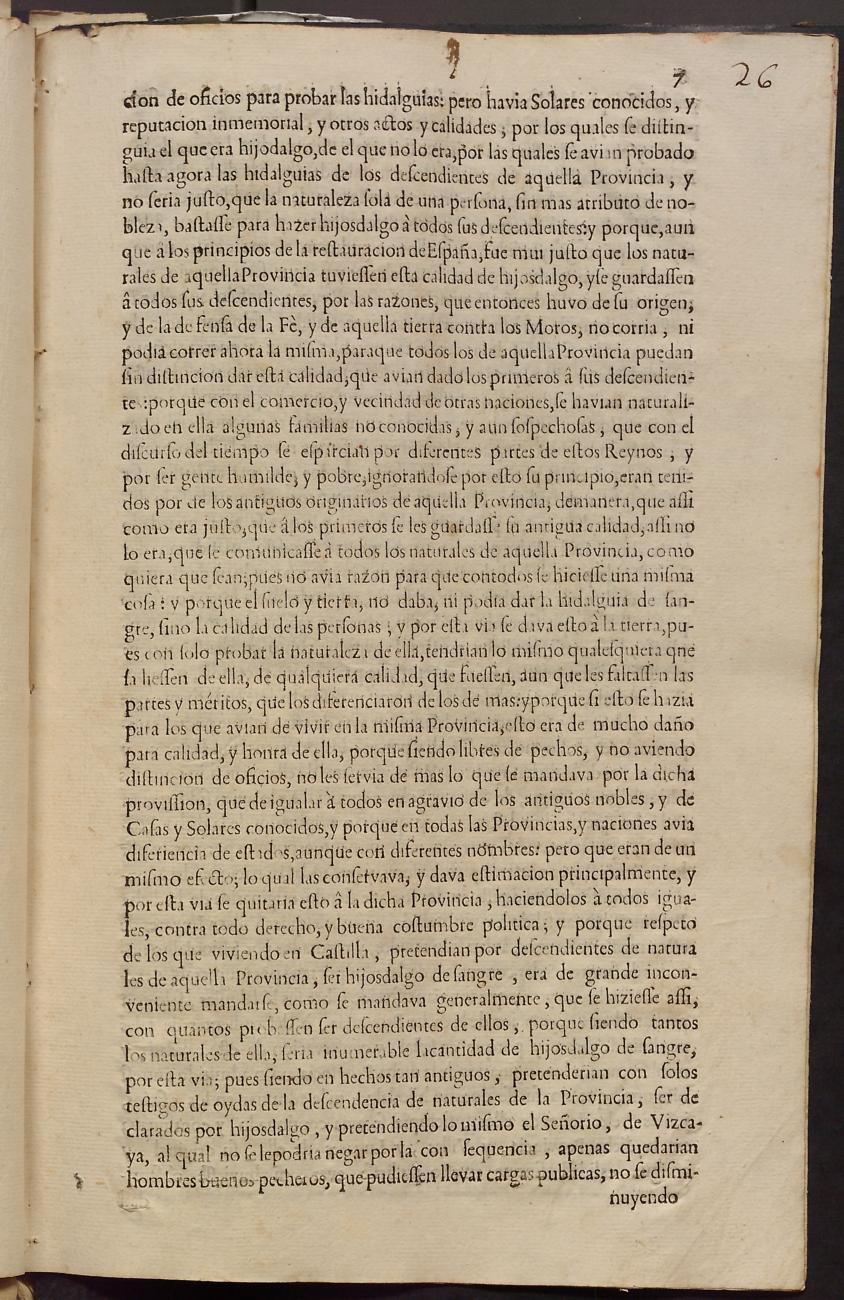 7 26
cion de oficios para probar las hidalguias: pero havia Solares conocidos, y
reputacion inmemorial, y otros actos y calidades, por los quales se distin-
guia el que era hijodalgo, de el que no lo era, por las quales se avian probado
hasta agora las hidalguias de los descendientes de aquella Provincia, y
no seria justo, que la naturaleza sola de una persona, sin mas atributo de no-
bleza, bastasse para hazer hijosdalgo â todos sus descendientes: y porque, aun
que â los principios de la restauracion de España, fue mui justo que los natu-
rales de aquella Provincia tuviessen esta calidad de hijosdalgo, y se guardassen
â todos sus descendientes, por las razones, que entonces huvo de su origen,
y de la de fensa de la Fè, y de aquella tierra contra los Moros, no corria, ni
podia correr ahora la misma, paraque todos los de aquella Provincia puedan
sin distincion dar esta calidad, que avian dado los primeros â sus descendien-
tes: porque con el comercio, y vecindad de otras naciones, se havian naturali-
zado en ella algunas familias no conocidas, y aun sospechosas, que con el
discurso del tiempo se esparcian por diferentes partes de estos Reynos, y
por ser gente humilde, y pobre, ignorandose por esto su principio, eran teni-
dos por de los antiguos originarios de aquella Provincia, demanera, que assi
como era justo, que â los primeros se les guardasse su antigua calidad, assi no
lo era, que se comunicasse â todos los naturales de aquella Provincia, como
quiera que sean, pues no avia razon para que contodos se hiciesse una misma
cosa: y porque el suelo y tierra, no daba, ni podia dar la hidalguia de san-
gre, sino la calidad de las personas; y por esta via se dava esto â la tierra, pu-
es con solo probar la naturaleza de ella, tendrian lo mismo qualesquiera qne
saliessen de ella, de qualquiera calidad, que fuessen, aun que les faltassen las
partes y méritos, que los diferenciaron de los de mas: y porque si esto se hazia
para los que avian de vivir en la misma Provincia, esto era de mucho daño
para calidad, y honra de ella, porque siendo libres de pechos, y no aviendo
distincion de oficios, no les servia de mas lo que se mandava por la dicha
provission, que de igualar à todos en agravio de los antiguos nobles, y de
Casas y Solares conocidos, y porque en todas las Provincias, y naciones avia
diferiencia de estados, aunque con diferentes nombres: pero que eran de un
mismo efecto; lo qual las conservava, y dava estimacion principalmente, y
por esta via se quitaria esto â la dicha Provincia, haciendolos à todos igua-
les, contra todo derecho, y buena costumbre politica; y porque respeto
de los que viviendo en Castilla, pretendian por descendientes de natura
les de aquella Provincia, ser hijosdalgo de sangre, era de grande incon-
veniente mandarse, como se mandava generalmente, que se hiziesse assi,
con quantos probassen ser descendientes de ellos, porque siendo tantos
los naturales de ella, seria inumerable la cantidad de hijosdalgo de sangre,
por esta via; pues siendo en hechos tan antiguos, pretenderian con solos
testigos de oydas de la descendencia de naturales de la Provincia, ser de
clarados por hijosdalgo, y pretendiendo lo mismo el Señorio, de Vizca-
ya, al qual no se le podria negar por la con sequencia, apenas quedarian
hombres buenos pecheros, que pudiessen llevar cargas publicas, no se dismi-
nuyendo